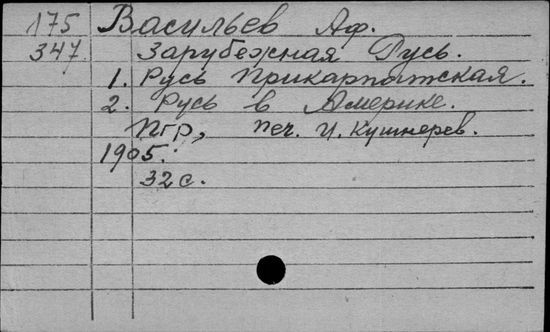 175 Васильев Аф.
347 Зарубежная Русь.
1. Русь Прикарпатская.
2. Русь в Америке.
Пгр, печ. И. Кушнерев.
1905.
32 с.